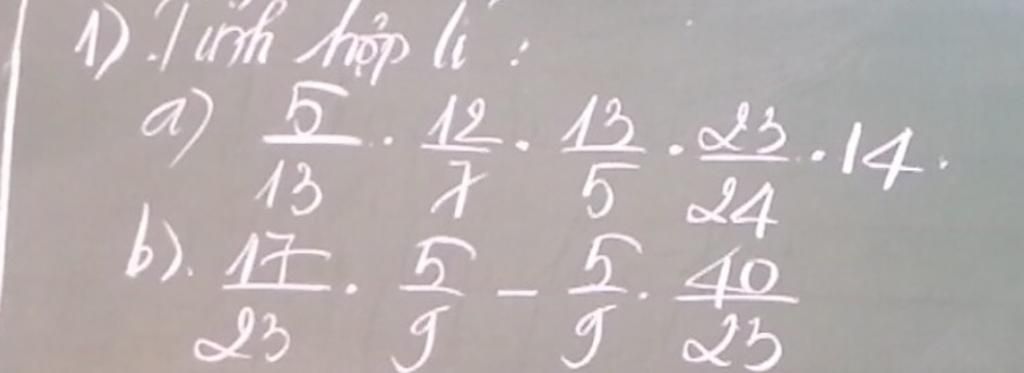 1) Tính hợp lí :
a) 5/13 . 12/7 . 13/5 . 23/24 . 14.
b). 17/23 . 5/9 - 5/9 . 40/23